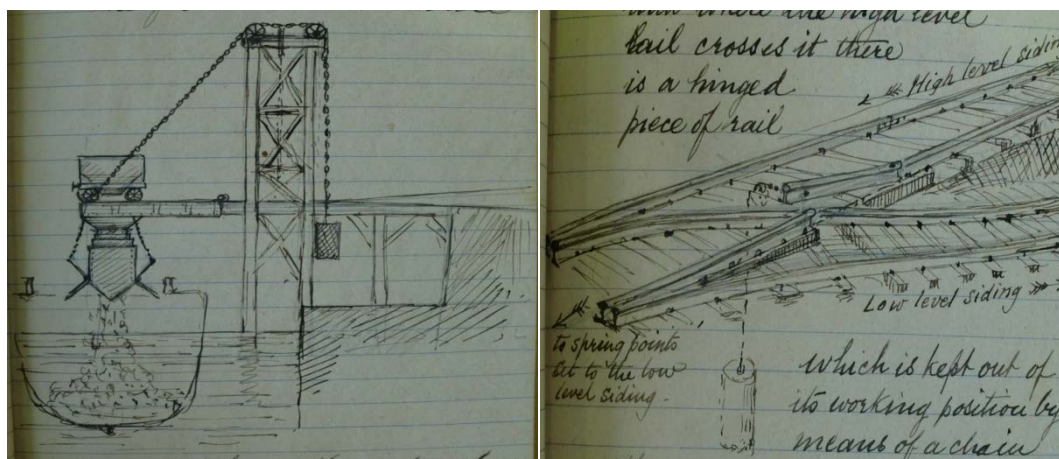 where the high level
rail crosses it there
is a hinged
piece of rail
High level siding
Low level siding
to spring points
set to the low
level siding.
which is kept out of
its working position by
means of a chain